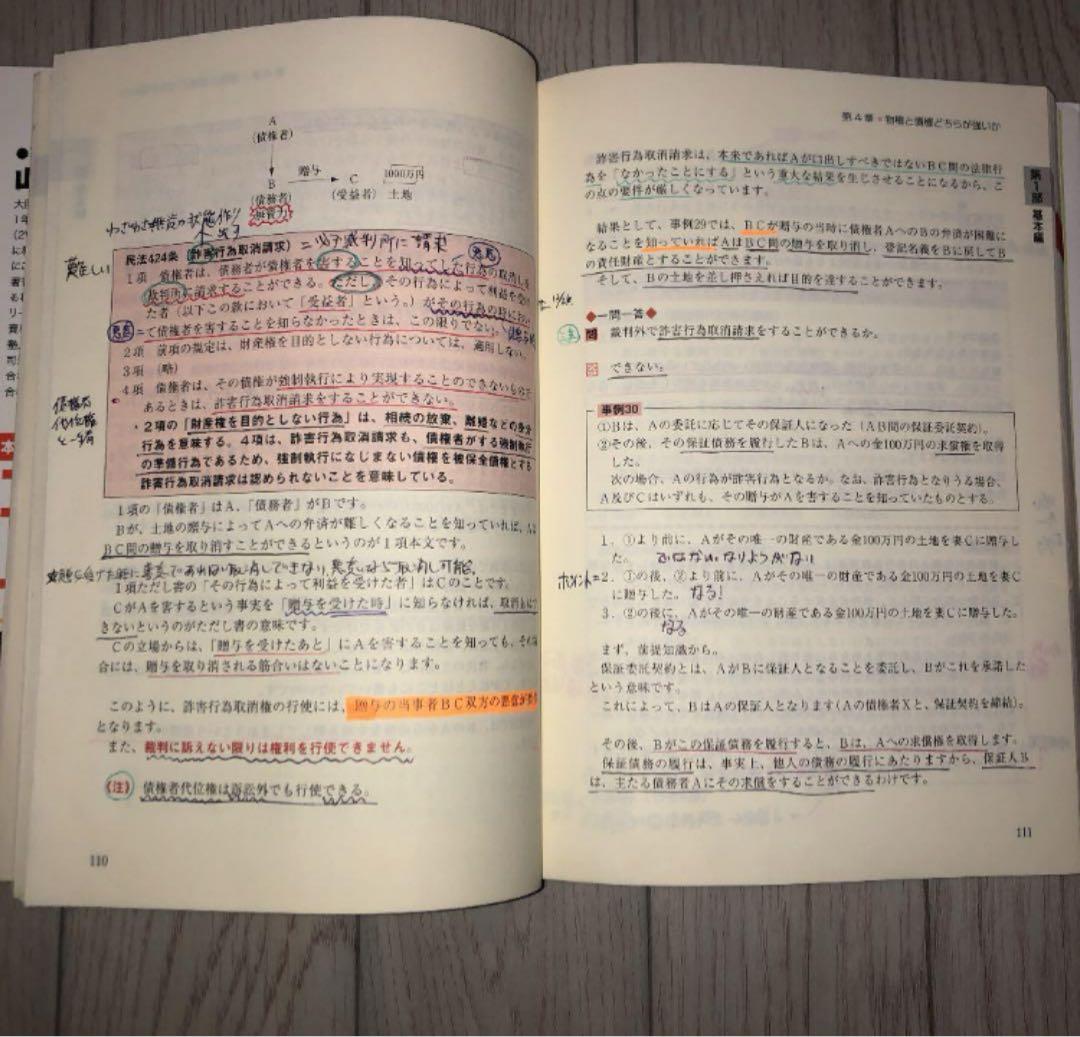 A
(債権者)
贈与
B
C
1000万円
(債務者)
(受益者)
土地
無資力
難しい
民法424条(詐害行為取消請求)
=必ず裁判所に請求
悪意
1項 債権者は、債務者が債権者を害することを知ってした行為の取消しを
裁判所に請求することができる。ただし、その行為によって利益を受け
た者(以下この款において「受益者」という。)がその行為の時におい
悪意
て債権者を害することを知らなかったときは、この限りでない。
2項 前項の規定は、財産権を目的としない行為については、適用しない。
3項 (略)
4項 債権者は、その債権が強制執行により実現することのできないもので
あるときは、詐害行為取消請求をすることができない。
債権者
代位権
と一緒
・2項の「財産権を目的としない行為」は、相続の放棄、離婚などの身分
行為を意味する。4項は、詐害行為取消請求も、債権者がする強制執行
の準備行為であるため、強制執行になじまない債権を被保全債権とする
詐害行為取消請求は認められないことを意味している。
1項の「債権者」はA、「債務者」がBです。
Bが、土地の贈与によってAへの弁済が難しくなることを知っていれば、Aは
BC間の贈与を取り消すことができるというのが1項本文です。
1項ただし書の「その行為によって利益を受けた者」はCのことです。
CがAを害するという事実を「贈与を受けた時」に知らなければ、取消しはで
きないというのがただし書の意味です。
Cの立場からは、「贈与を受けたあと」にAを害することを知っても、その
合には、贈与を取り消される筋合いはないことになります。
このように、詐害行為取消権の行使には、贈与の当事者BC双方の悪意が
となります。
また、裁判に訴えない限りは権利を行使できません。
(注) 債権者代位権は訴訟外でも行使できる。
110
第4章・物権と債権どちらが強いか
第1部 基本編
詐害行為取消請求は、本来であればAが口出しすべきではないBC間の法律行
為を「なかったことにする」という重大な結果を生じさせることになるから、こ
の点の要件が厳しくなっています。
結果として、事例29では、BCが贈与の当時に債権者AへのBの弁済が困難
になることを知っていればAはBC間の贈与を取り消し、登記名義をBに戻してB
の責任財産とすることができます。
そして、Bの土地を差し押さえれば目的を達することができます。
◆一問一答◆
問 裁判外で詐害行為取消請求をすることができるか。
答 できない。
事例30
①Bは、Aの委託に応じてその保証人になった(AB間の保証委託契約)。
②その後、その保証債務を履行したBは、Aへの金100万円の求償権を取得
した。
次の場合、Aの行為が詐害行為となるか。なお、詐害行為となりうる場合、
A及びCはいずれも、その贈与がAを害することを知っていたものとする。
1.①より前に、Aがその唯一の財産である金100万円の土地を妻Cに贈与し
た。
ならない なりようがない
ポイント=
2.①の後、②より前に、Aがその唯一の財産である金100万円の土地を妻C
に贈与した。
なる!
3.②の後に、Aがその唯一の財産である金100万円の土地を妻Cに贈与した。
なる
まず、前提知識から。
保証委託契約とは、AがBに保証人となることを委託し、Bがこれを承諾した
という意味です。
これによって、BはAの保証人となります(Aの債権者Xと、保証契約を締結)。
その後、Bがこの保証債務を履行すると、Bは、Aへの求償権を取得します。
保証債務の履行は、事実上、他人の債務の履行にあたりますから、保証人B
は、主たる債務者Aにその求償をすることができるわけです。
111